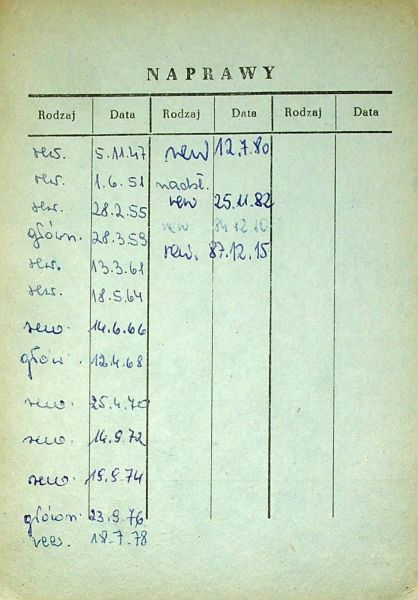 NAPRAWY
Rodzaj Data Rodzaj Data Rodzaj Data
rew. 5.11.47
rew. 1.6.51
rew. 28.2.55
główn. 28.3.59
rew. 13.3.61
rew. 18.5.64
rew. 14.6.66
głów. 12.4.68
rew. 25.4.70
rew. 14.9.72
rew. 19.9.74
główn. 23.9.76
rew. 18.7.78
rew 12.7.80
nadzł.
rew 25.11.82
rew 84 12 10
rew. 87.12.15